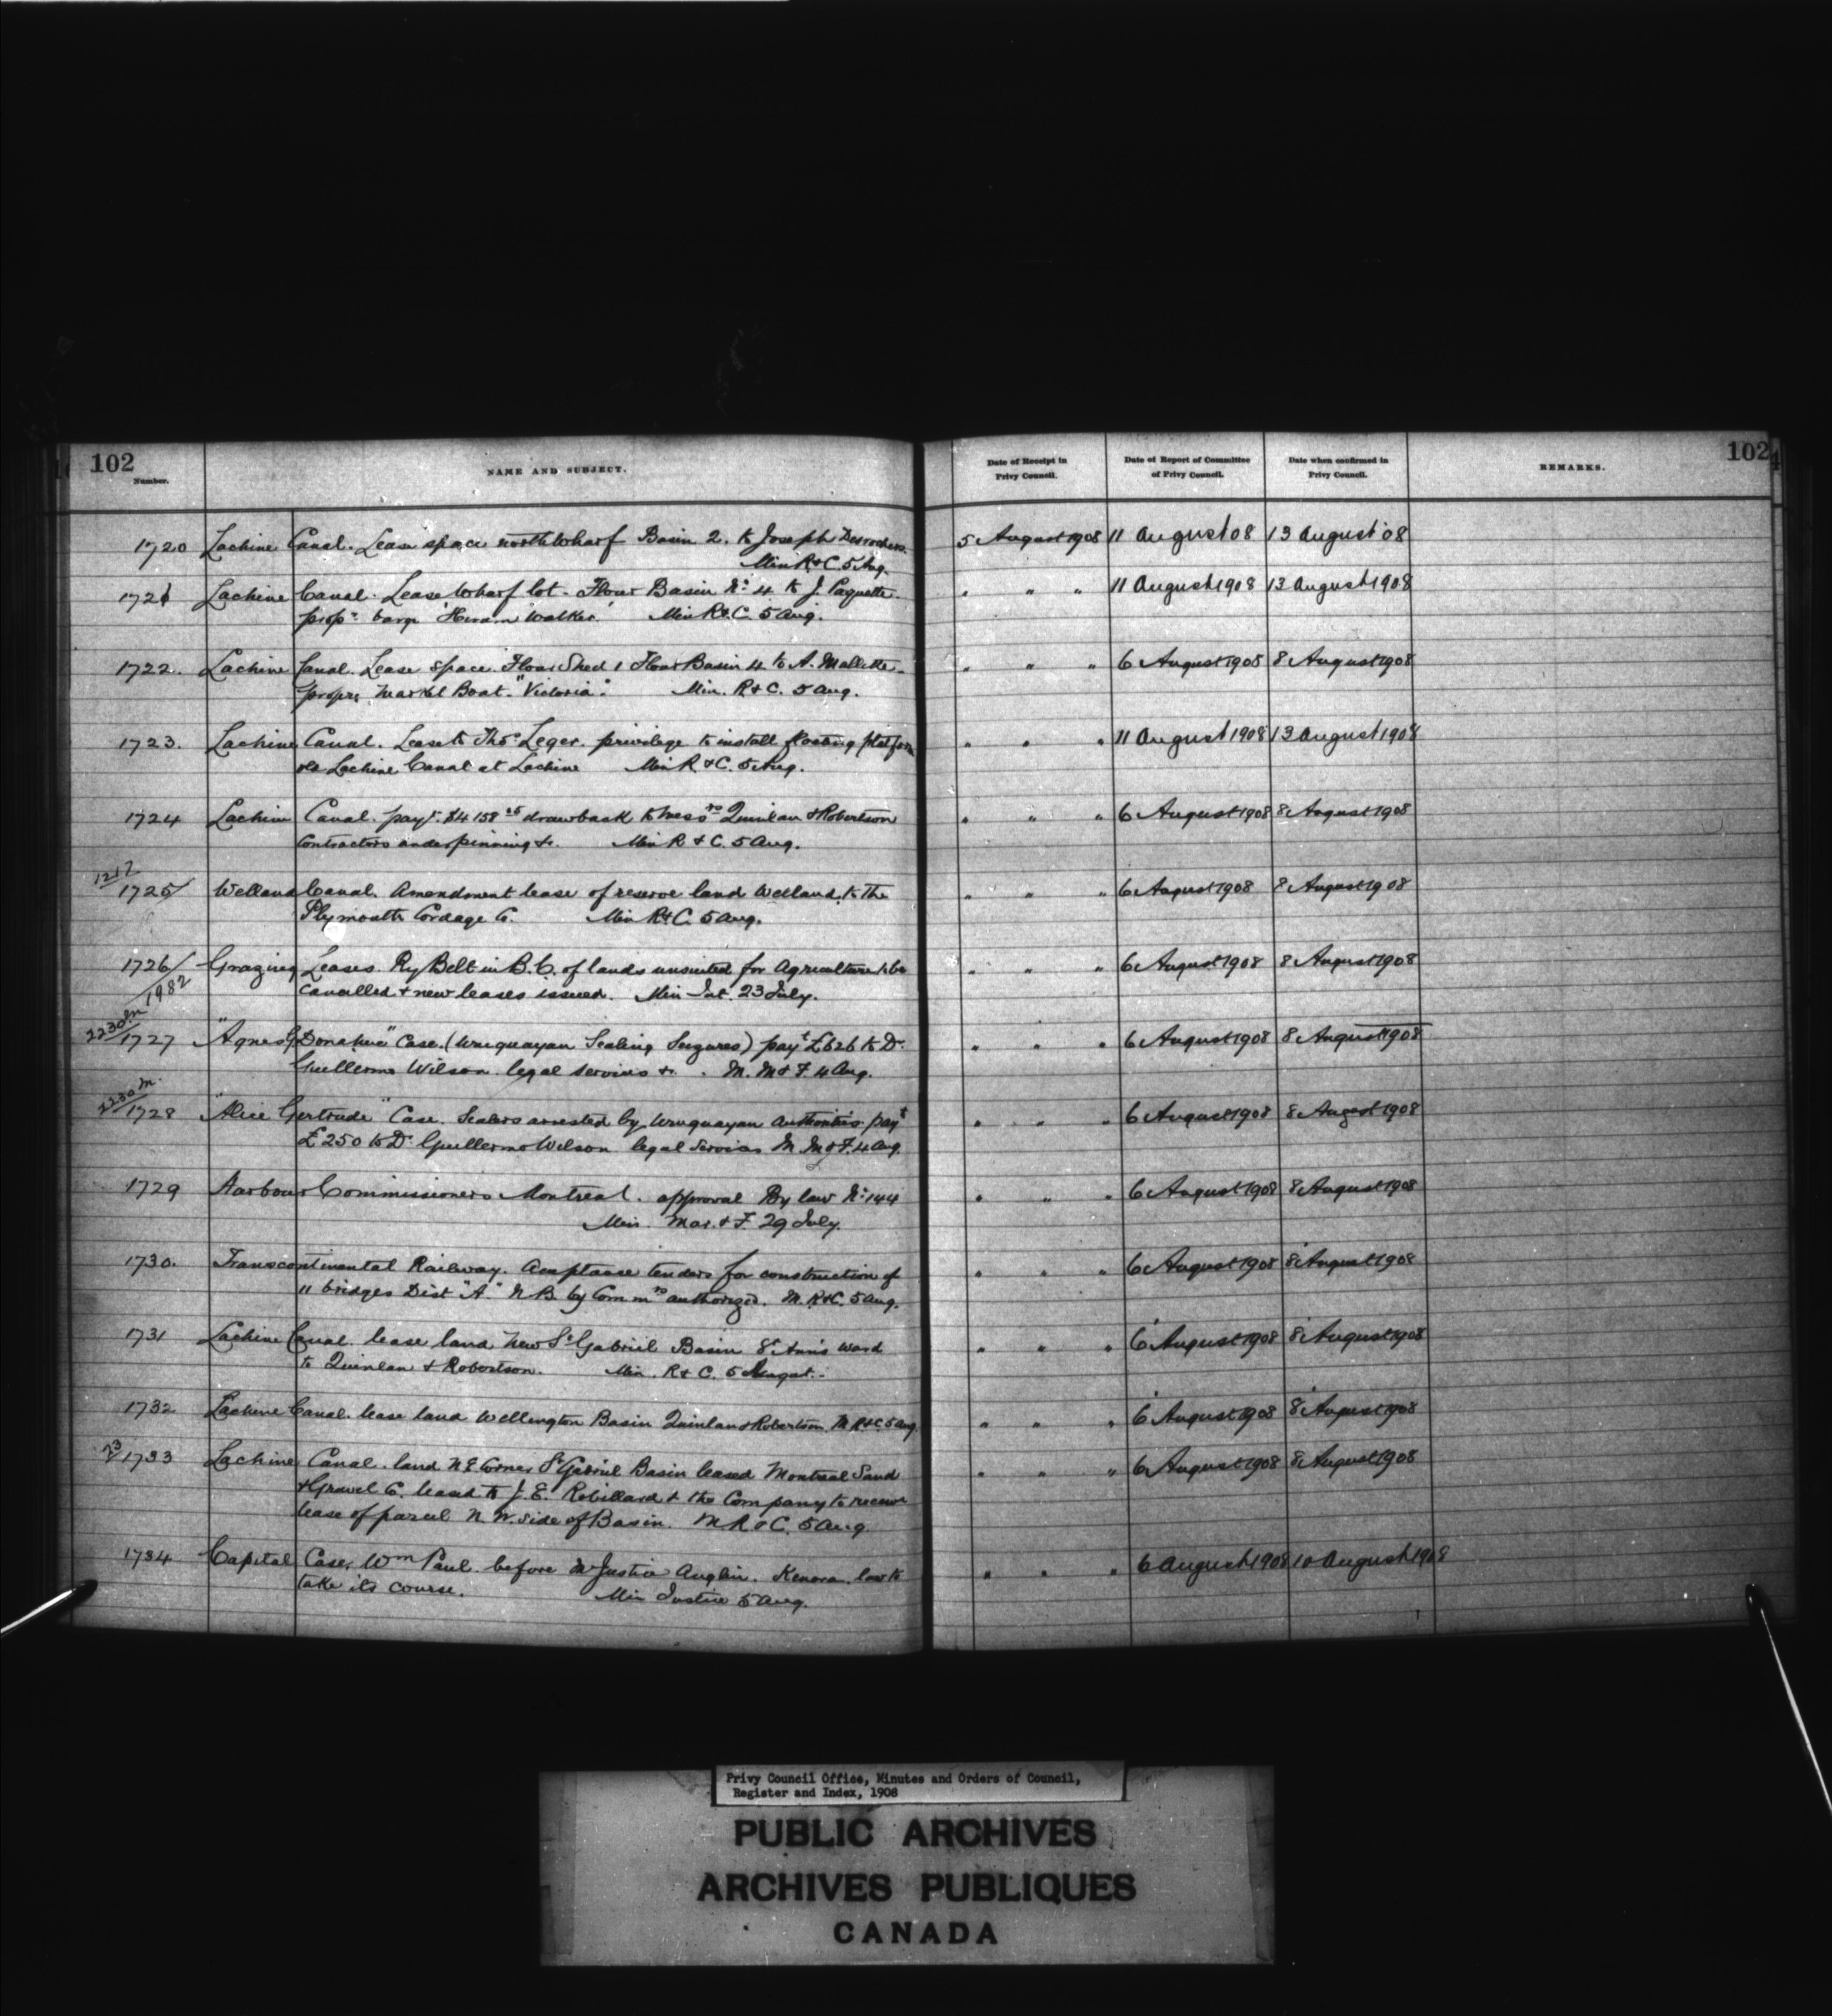 102
Number.
NAME AND SUBJECT.
Date of Receipt in Privy Council.
Date of Report of Committee of Privy Council.
Date when confirmed in Privy Council.
REMARKS.
102
1720 Lachine Canal. Lease space north wharf Basin 2. to Joseph Desrochers 5 August 1908 11 August 08 13 August 08
Min R & C. 5 Aug.
1721 Lachine Canal. Lease wharf lot - Flour Basin No 4 to J. Paquette " " " 11 August 1908 13 August 1908
propr barge 'Hiram Walker.' Min R & C. 5 Aug.
1722. Lachine Canal. Lease space Flour Shed 1 Flour Basin 4 to A. Mallette " " " 6 August 1908 8 August 1908
propr. Market Boat "Victoria". Min. R & C. 5 Aug.
1723. Lachine Canal. Lease to Thos Leger. privilege to install floating platform " " " 11 August 1908 13 August 1908
old Lachine Canal at Lachine Min R. & C. 5 Aug.
1724 Lachine Canal. payt. $4158 drawback to Messrs Quinlan & Robertson " " " 6 August 1908 8 August 1908
Contractors underpinning &c. Min R & C. 5 Aug.
1217
1725 Welland Canal. Amendment lease of reserve land Welland to the " " " 6 August 1908 8 August 1908
Plymouth Cordage Co. Min R & C. 5 Aug.
1726 Grazing Leases Ry Belt in B.C. of lands unsuited for Agriculture to be " " " 6 August 1908 8 August 1908
1982 cancelled & new leases issued. Min Int. 23 July.
2230 M
1727 "Agnes G Donahoe" Case. (Uruguayan Sealing Seizures) payt £626 to Dr. " " " 6 August 1908 8 August 1908
Guillermo Wilson legal services &c. M. M & F. 4 Aug.
2230 M.
1728 "Alice Gertrude" Case. Sealers arrested by Uruguayan Authorities payt " " " 6 August 1908 8 August 1908
£250 to Dr Guillermo Wilson legal services M. M & F. 4 Aug.
1729 Harbour Commissioners Montreal. approval By law No 144 " " " 6 August 1908 8 August 1908
Min. Mar. & F. 29 July.
1730. Transcontinental Railway. Acceptance tenders for construction of " " " 6 August 1908 8 August 1908
11 bridges Dist "A." N.B. by Commrs authorized. M. R & C. 5 Aug.
1731 Lachine Canal. lease land New St Gabriel Basin St Ann's Ward " " " 6 August 1908 8 August 1908
to Quinlan & Robertson. Min. R & C. 5 August.
1732 Lachine Canal. lease land Wellington Basin Quinlan & Robertson M R & C. 5 Aug " " " 6 August 1908 8 August 1908
1733 Lachine Canal. land N.E. Corner St Gabriel Basin leased Montreal Sand " " " 6 August 1908 8 August 1908
& Gravel Co. leased to J. E. Robillard & the Company to receive
lease of parcel N. W. side of Basin. M R & C. 5 Aug.
1734 Capital Case. Wm Paul before Mr Justice Anglin. Kenora. law to " " " 6 August 1908 10 August 1908
take its course. Min Justice 5 Aug.
Privy Council Office, Minutes and Orders of Council,
Register and Index, 1908
PUBLIC ARCHIVES
ARCHIVES PUBLIQUES
CANADA